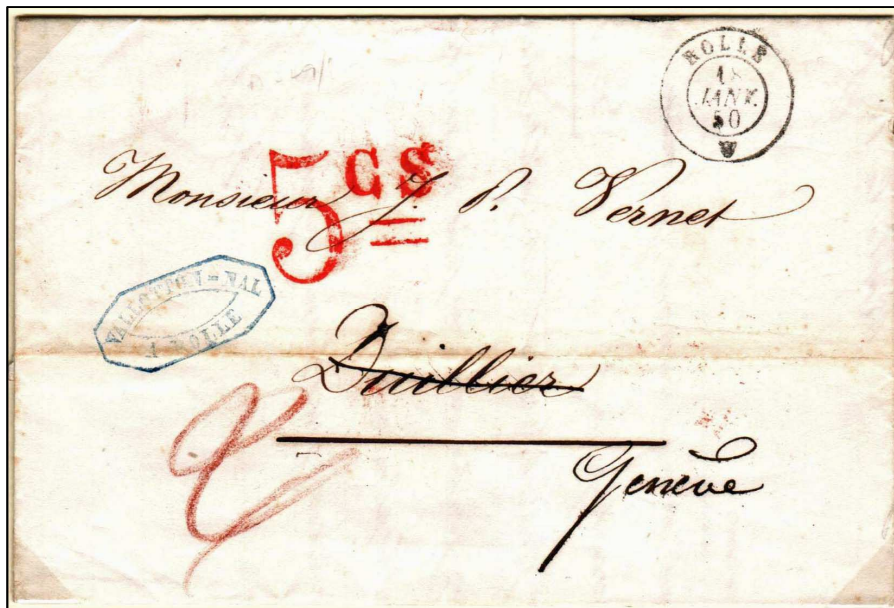 ROLLE
18
JANV.
50
5 CS
Monsieur J. P. Vernet
VALLOTTON-NAL
A ROLLE
Duillier
Genève